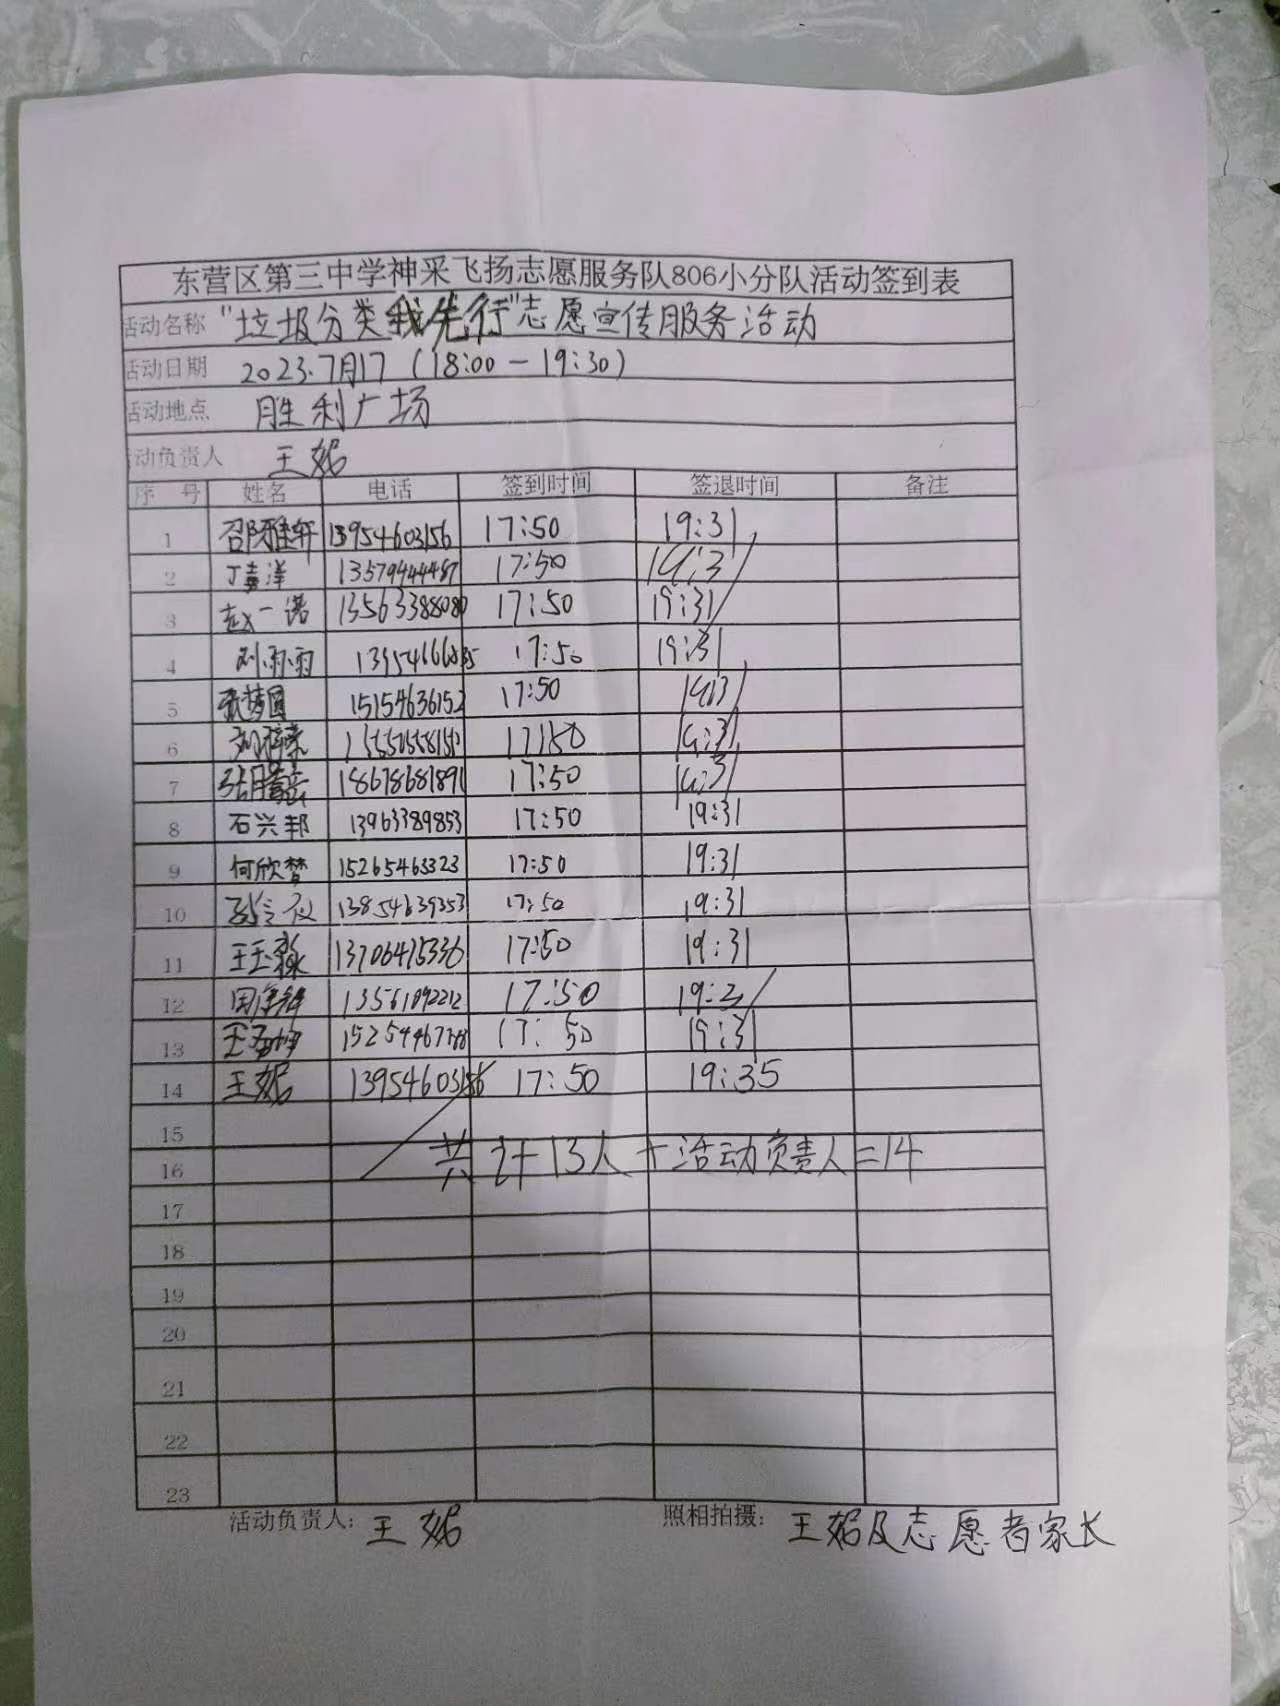 东营区第三中学神采飞扬志愿服务队806小分队活动签到表
活动名称 "垃圾分类我先行"志愿宣传服务活动
活动日期 2023.7月17 (18:00-19:30)
活动地点 胜利广场
活动负责人 王妮
序号 姓名 电话 签到时间 签退时间 备注
1 邵雅轩 13954603156 17:50 19:31
2 丁嘉洋 13579444487 17:50 19:31
3 赵一诺 13563388080 17:50 19:31
4 刘雨雨 17:50 19:31
5 张梦圆 15154636152 17:50 19:31
6 17:50 19:31
7 18678681891 17:50 19:31
8 石兴邦 13963389853 17:50 19:31
9 何欣梦 15265463323 17:50 19:31
10 13854639353 17:50 19:31
11 王玉淼 13706475336 17:50 19:31
12 13561092212 17:50
13 17:50 19:31
14 王妮 13954603156 17:50 19:35
15
16 共计13人+活动负责人=14
17
18
19
20
21
22
23
活动负责人: 王妮 照相拍摄: 王妮及志愿者家长